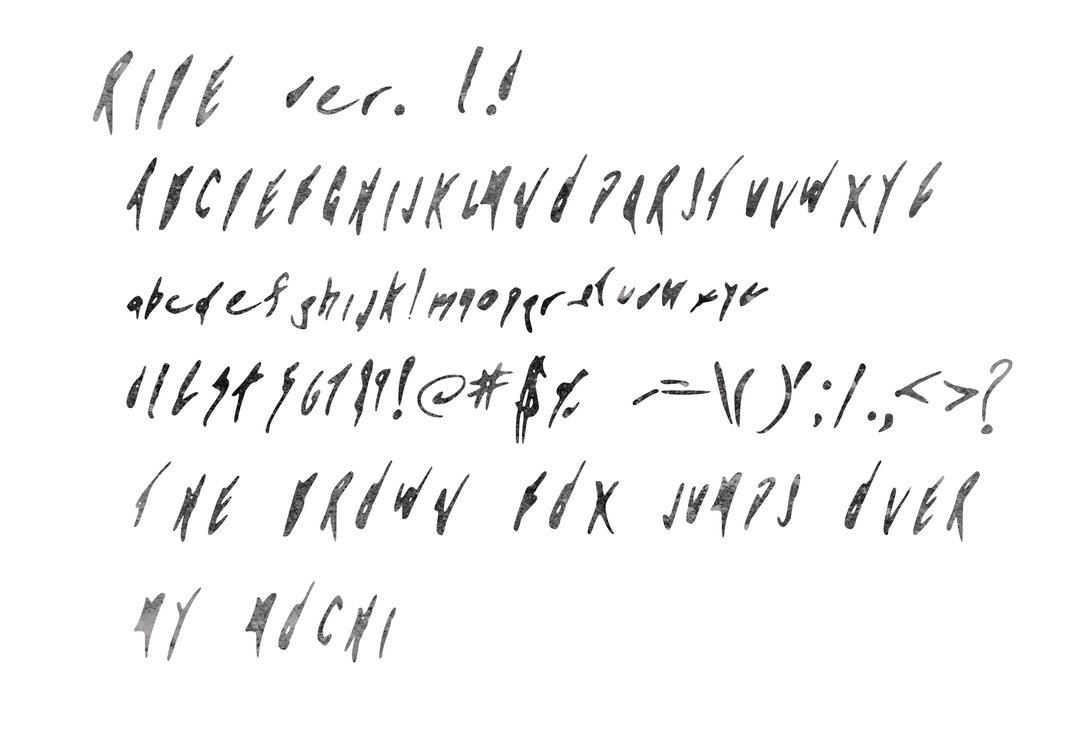 ver. 1.0
ABCDEFGHIJKLMNOPQRSTUVWXYZ
abcdefghijklmnopqrstuvwxyz
0123456789!@#$% -=\()';/.,<>?
THE BROWN FOX JUMPS OVER
MY MOCHI